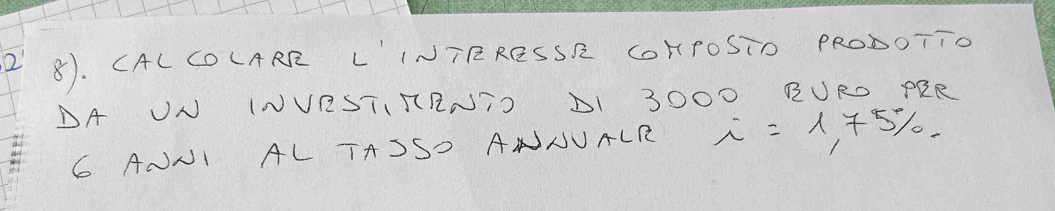 8). CALCOLARE L'INTERESSE COMPOSTO PRODOTTO
DA UN INVESTIMENTO DI 3000 EURO PER
6 ANNI AL TASSO ANNUALE i = 1,75%.